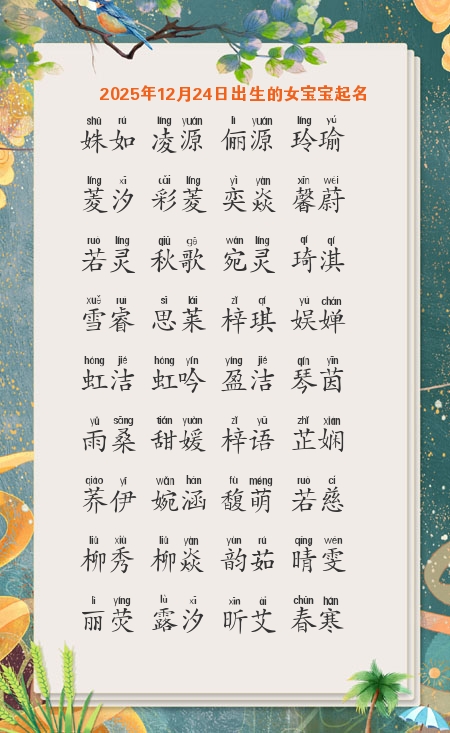 2025年12月24日出生的女宝宝起名
shū rú líng yuán lì yuán líng yú
姝如 凌源 俪源 玲瑜
líng xī cǎi líng yì yàn xīn wèi
菱汐 彩菱 奕焱 馨蔚
ruò líng qiū gē wǎn líng qí qí
若灵 秋歌 宛灵 琦淇
xuě ruì sī lái zǐ qí yú chán
雪睿 思莱 梓琪 娱婵
hóng jié hóng yín yíng jié qín yīn
虹洁 虹吟 盈洁 琴茵
yǔ sāng tián yuàn zǐ yǔ zhǐ xián
雨桑 甜媛 梓语 芷娴
qiáo yī wǎn hán fù méng ruò cí
荞伊 婉涵 馥萌 若慈
liǔ xiù liǔ yàn yùn rú qíng wén
柳秀 柳焱 韵茹 晴雯
lì yíng lù xī xīn ài chūn hán
丽荧 露汐 昕艾 春寒